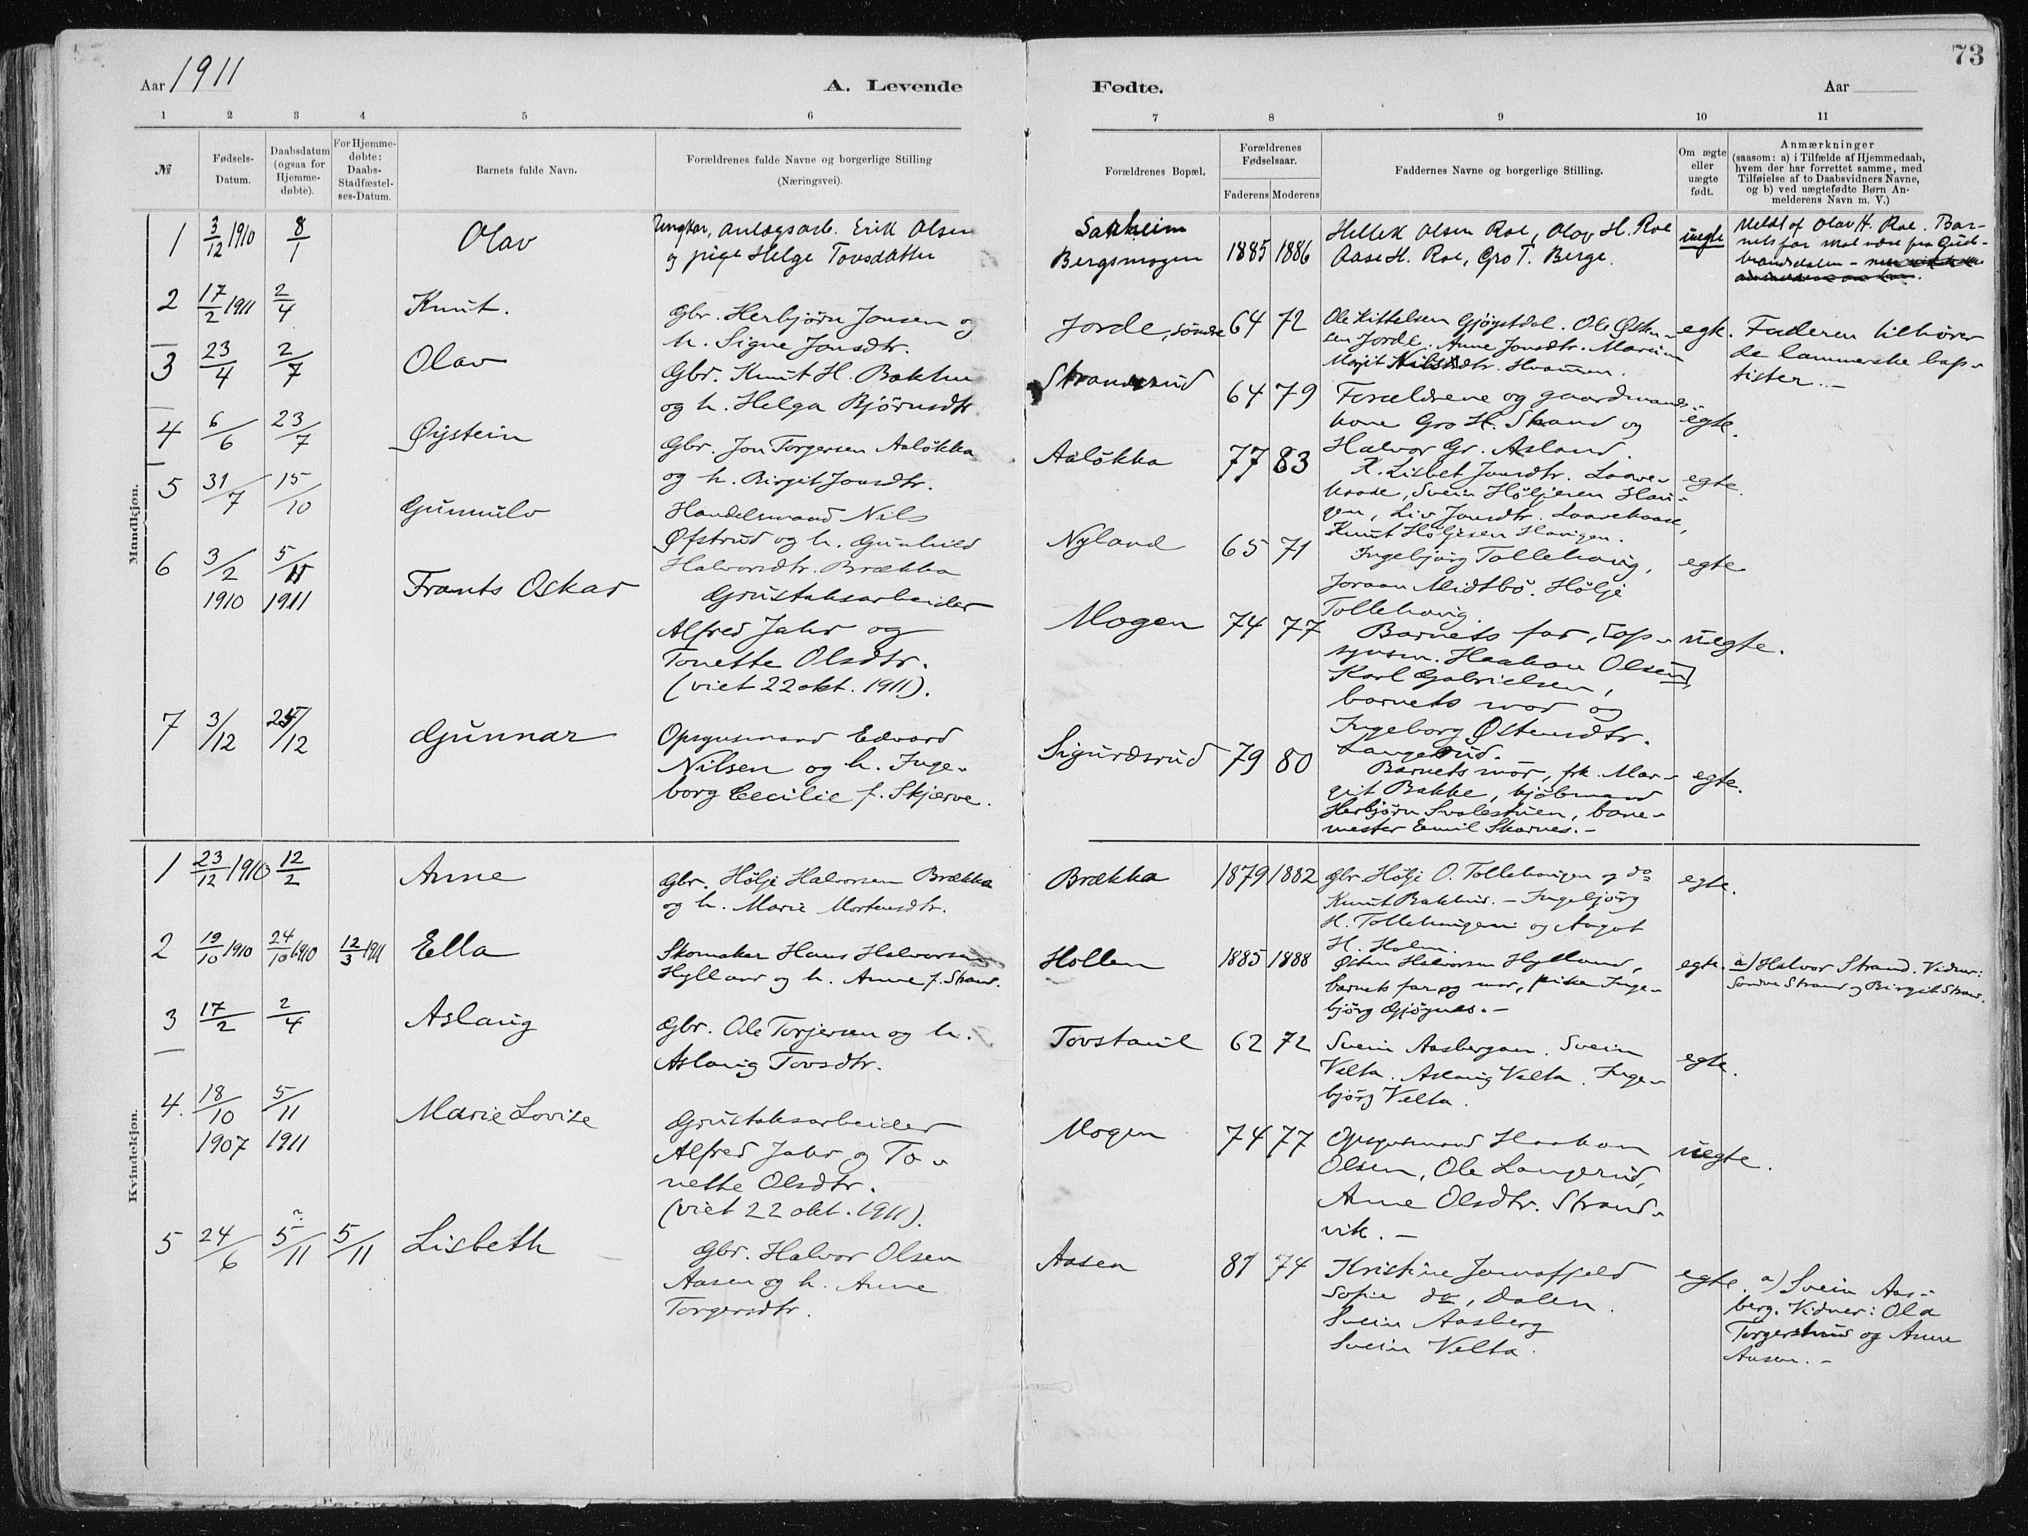 73
Aar 1911
A. Levende
Fødte.
Aar
1 2 3 4 5 6
7 8 9 10 11
№
Fødsels-
Datum.
Daabsdatum
(ogsaa for
Hjemme-
døbte).
For Hjemme-
døbte:
Daabs-
Stadfæstel-
ses-Datum.
Barnets fulde Navn.
Forældrenes fulde Navne og borgerlige Stilling
(Næringsvei).
Forældrenes Bopæl.
Forældrenes
Fødselsaar.
Faderens Moderens
Faddernes Navne og borgerlige Stilling.
Om ægte
eller
uægte
født.
Anmærkninger
(saasom: a) i Tilfælde af Hjemmedaab,
hvem der har forrettet samme, med
Tilføielse af to Daabsvidners Navne,
og b) ved uægtefødte Børn An-
melderens Navn m. V.)
Mandkjøn.
1 3/12 1910 8/1 Olav
Ungkar, anlægsarb. Erik Olsen
og pige Helge Tovsdatter
Bergsmogen 1885 1886
Hellek Olsen Roe, Olav H. Roe
Aase H. Roe, Gro T. Berge.
uegte
Meldt af Olav H. Roe. Bar-
nets far skal være fra Gud-
brandsdalen
2 17/2 1911 2/4 Knut.
Gbr. Herbjørn Jonsen og
h. Signe Jonsdtr.
Jorde, søndre 64 72
Ole Kittelsen Gjøystdal. Ole Øste-
sen Jorde. Anne Jonsdtr.
Margit
egte.
Faderen tilhører
de lammerske bap-
tister.-
3 23/4 2/7 Olav
Gbr. Knut H. Bakhus
og h. Helga Bjørnsdtr
Strandsrud 64 79
Forældrene og gaardmands-
kone Gro H. Strand og
Halvor Gr. Asland.
egte.
4 6/6 23/7 Øystein
Gbr. Jon Torgersen Aaløkka
og h. Birgit Jonsdtr.
Aaløkka 77 83
K. Lisbet Jonsdtr. Laave-
kaase, Svein Høljesen Hau-
gen, Liv Jonsdtr. Laavekaase,
Knut Høljesen Haugen.
egte.
5 31/7 15/10 Gunnulv
Handelsmand Nils
Øfstrud og h. Gunhild
Halvorsdtr. Brækka
Nyland 65 71
Ingebjørg Tollehaug,
Joraan Midtbø. Hølje
Tollehaug.
egte
6 3/2 1910 5/11 1911 Frants Oskar
Grustaksarbeider
Alfred Jahr og
Tonette Olsdtr.
(viet 22 okt. 1911).
Mogen 74 77
Barnets far, [op-
synsm. Haakon Olsen],
Karl Gabrielsen,
barnets mor og
Ingeborg Østensdtr.
Langerud.
uegte.
7 3/12 25/12 Gunnar
Opsynsmand Edvard
Nilsen og h. Inge-
borg Cecilie f. Skjerve.
Sigurdsrud 79 80
Barnets mor, frk. Mar-
git Bakke, kjøbmand
Herbjørn Svalestuen, bane-
mester Emil Skarnes.-
egte.
Kvindekjøn.
1 23/12 1910 12/2 Anne
Gbr. Hølje Halvorsen Brækka
og h. Marie Mortensdtr.
Brækka 1879 1882
Gbr. Hølje O. Tollehaugen og do
Knut Bakhus. - Ingebjørg
H. Tollehaugen og Angot
H. Holm.
egte.
2 19/10 1910 24/10 1910 12/3 1911 Ella
Skomaker Hans Halvorsen
Hylland og h. Anne f. Strand.
Hollen 1885 1888
Østen Halvorsen Hylland,
barnets far og mor, pike Inge-
bjørg Gjøynes.-
egte.
a) Halvor Strand. Vidner:
Sondre Strand og Birgit Strand.
3 17/2 2/4 Aslaug
Gbr. Ole Torjersen og h.
Aslaug Tovsdtr.
Tovstauil 62 72
Svein Aasbergan. Svein
Velta. Aslaug Velta. Inge-
bjørg Velta.
egte.
4. 18/10 1907 5/11 1911 Marie Lovise
Grustaksarbeider
Alfred Jahr og To-
nette Olsdtr.
(viet 22 okt. 1911).
Mogen 74 77
Opsynsmand Haakon
Olsen, Ole Langerud,
Anne Olsdtr. Strand-
vik. -
uegte.
5 24/6 5/11 5/11 Lisbeth
Gbr. Halvor Olsen
Aasen og h. Anne
Torgersdtr.
Aasen 81 74
Kristine Jonsfjeld
Sofie do, Dalen.
Svein Aasberg
Svein Velta.
egte.
a) Svein Aas-
berg. Vidner: Ola
Torgerstrud og Anne
Aasen. -